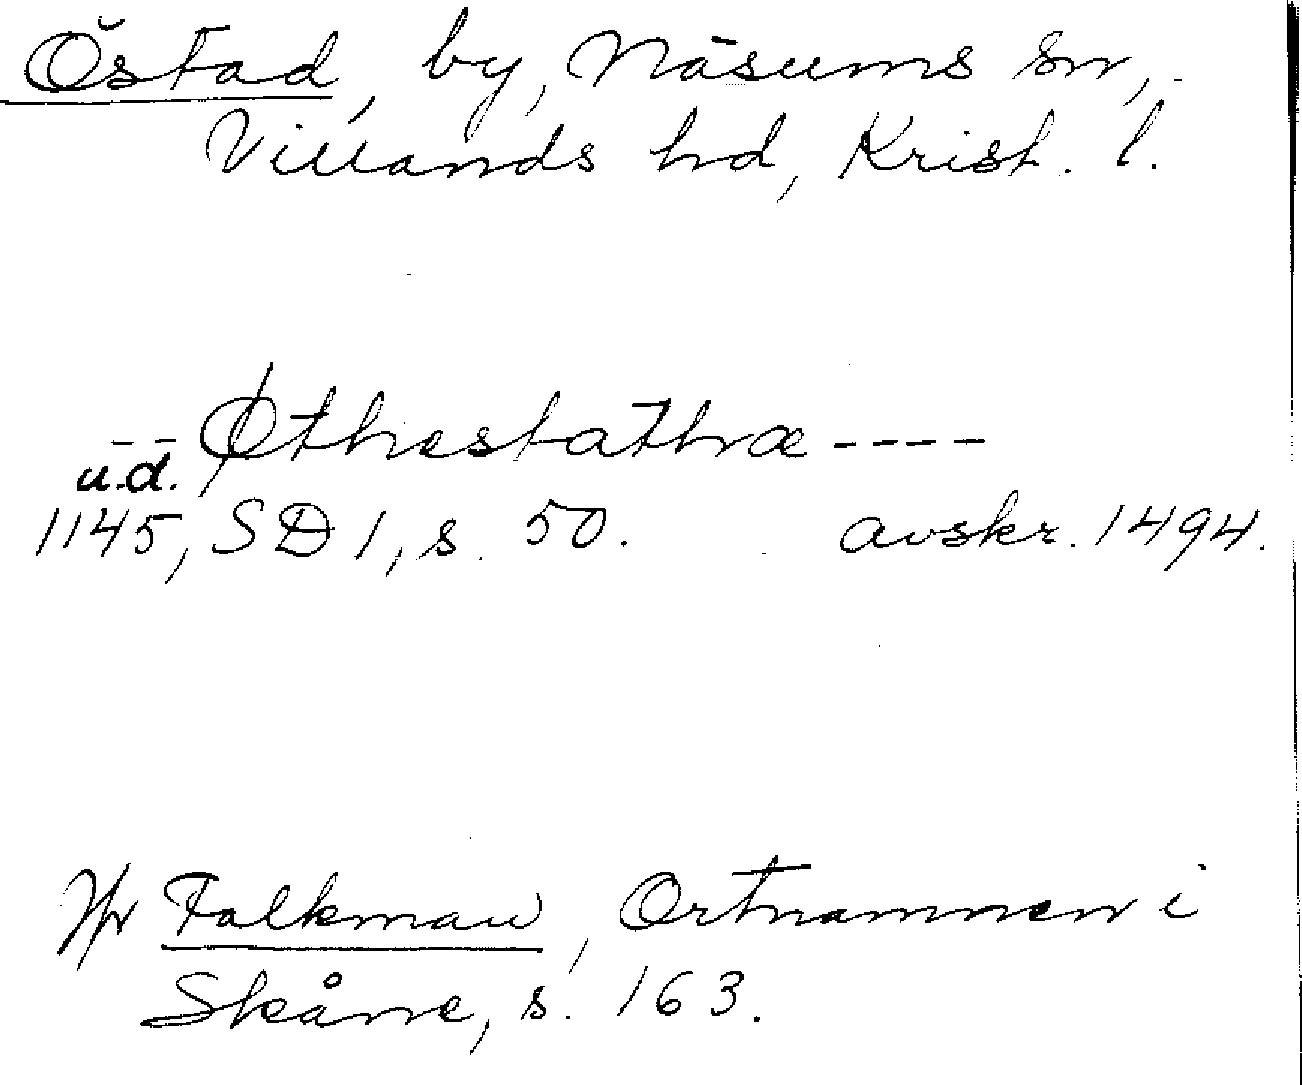 Östad, by, Näsums sn,
Villands hd, Krist. l.
-- Øthestathæ ----
u.d.
1145, SD 1, s. 50. avskr. 1494.
Jfr Falkman, Ortnamnen i
Skåne, s. 163.